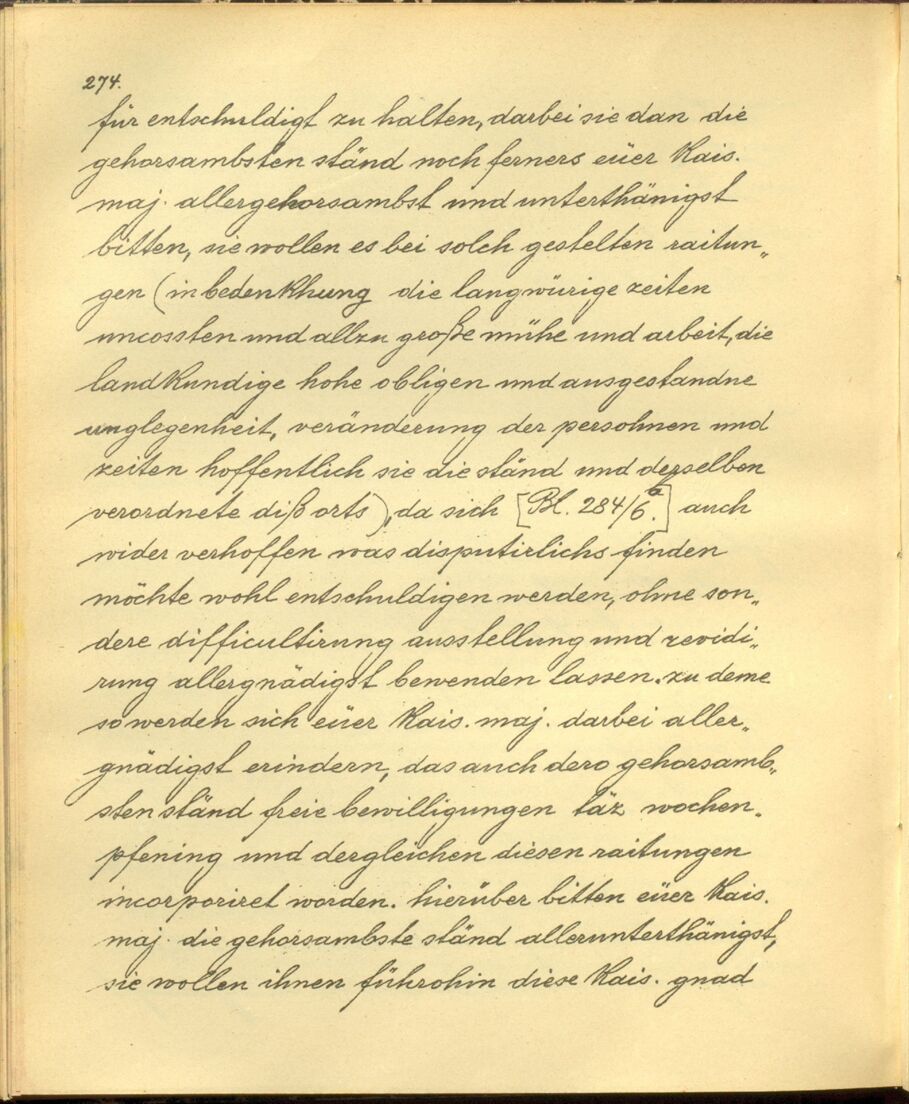 274.
für entschuldigt zu halten, darbei sie dan die
gehorsambsten ständ noch ferners eüer Kais.
maj. allergehorsambst und unterthänigst
bitten, sie wollen es bei solch gestelten raitun„
gen (in bedenkhung die langwürige zeiten
uncossten und allzu große mühe und arbeit, die
landkundige hohe obligen und ausgestandne
unglegenheit, veränderung der persohnen und
zeiten hoffentlich sie die ständ und derselben
verordnete diß orts), da sich [Bl. 284/6.a] auch
wider verhoffen was disputirlichs finden
möchte wohl entschuldigen werden, ohne son„
dere difficultirung ausstellung und revidi„
rung allergnädigst bewenden lassen. zu deme
so werden sich eüer Kais. maj. darbei aller„
gnädigst erindern, das auch dero gehorsamb„
sten ständ freie bewilligungen täz wochen„
pfening und dergleichen diesen raitungen
incorporiret worden. hierüber bitten eüer Kais.
maj. die gehorsambste ständ allerunterthänigst,
sie wollen ihnen führohin diese Kais. gnad